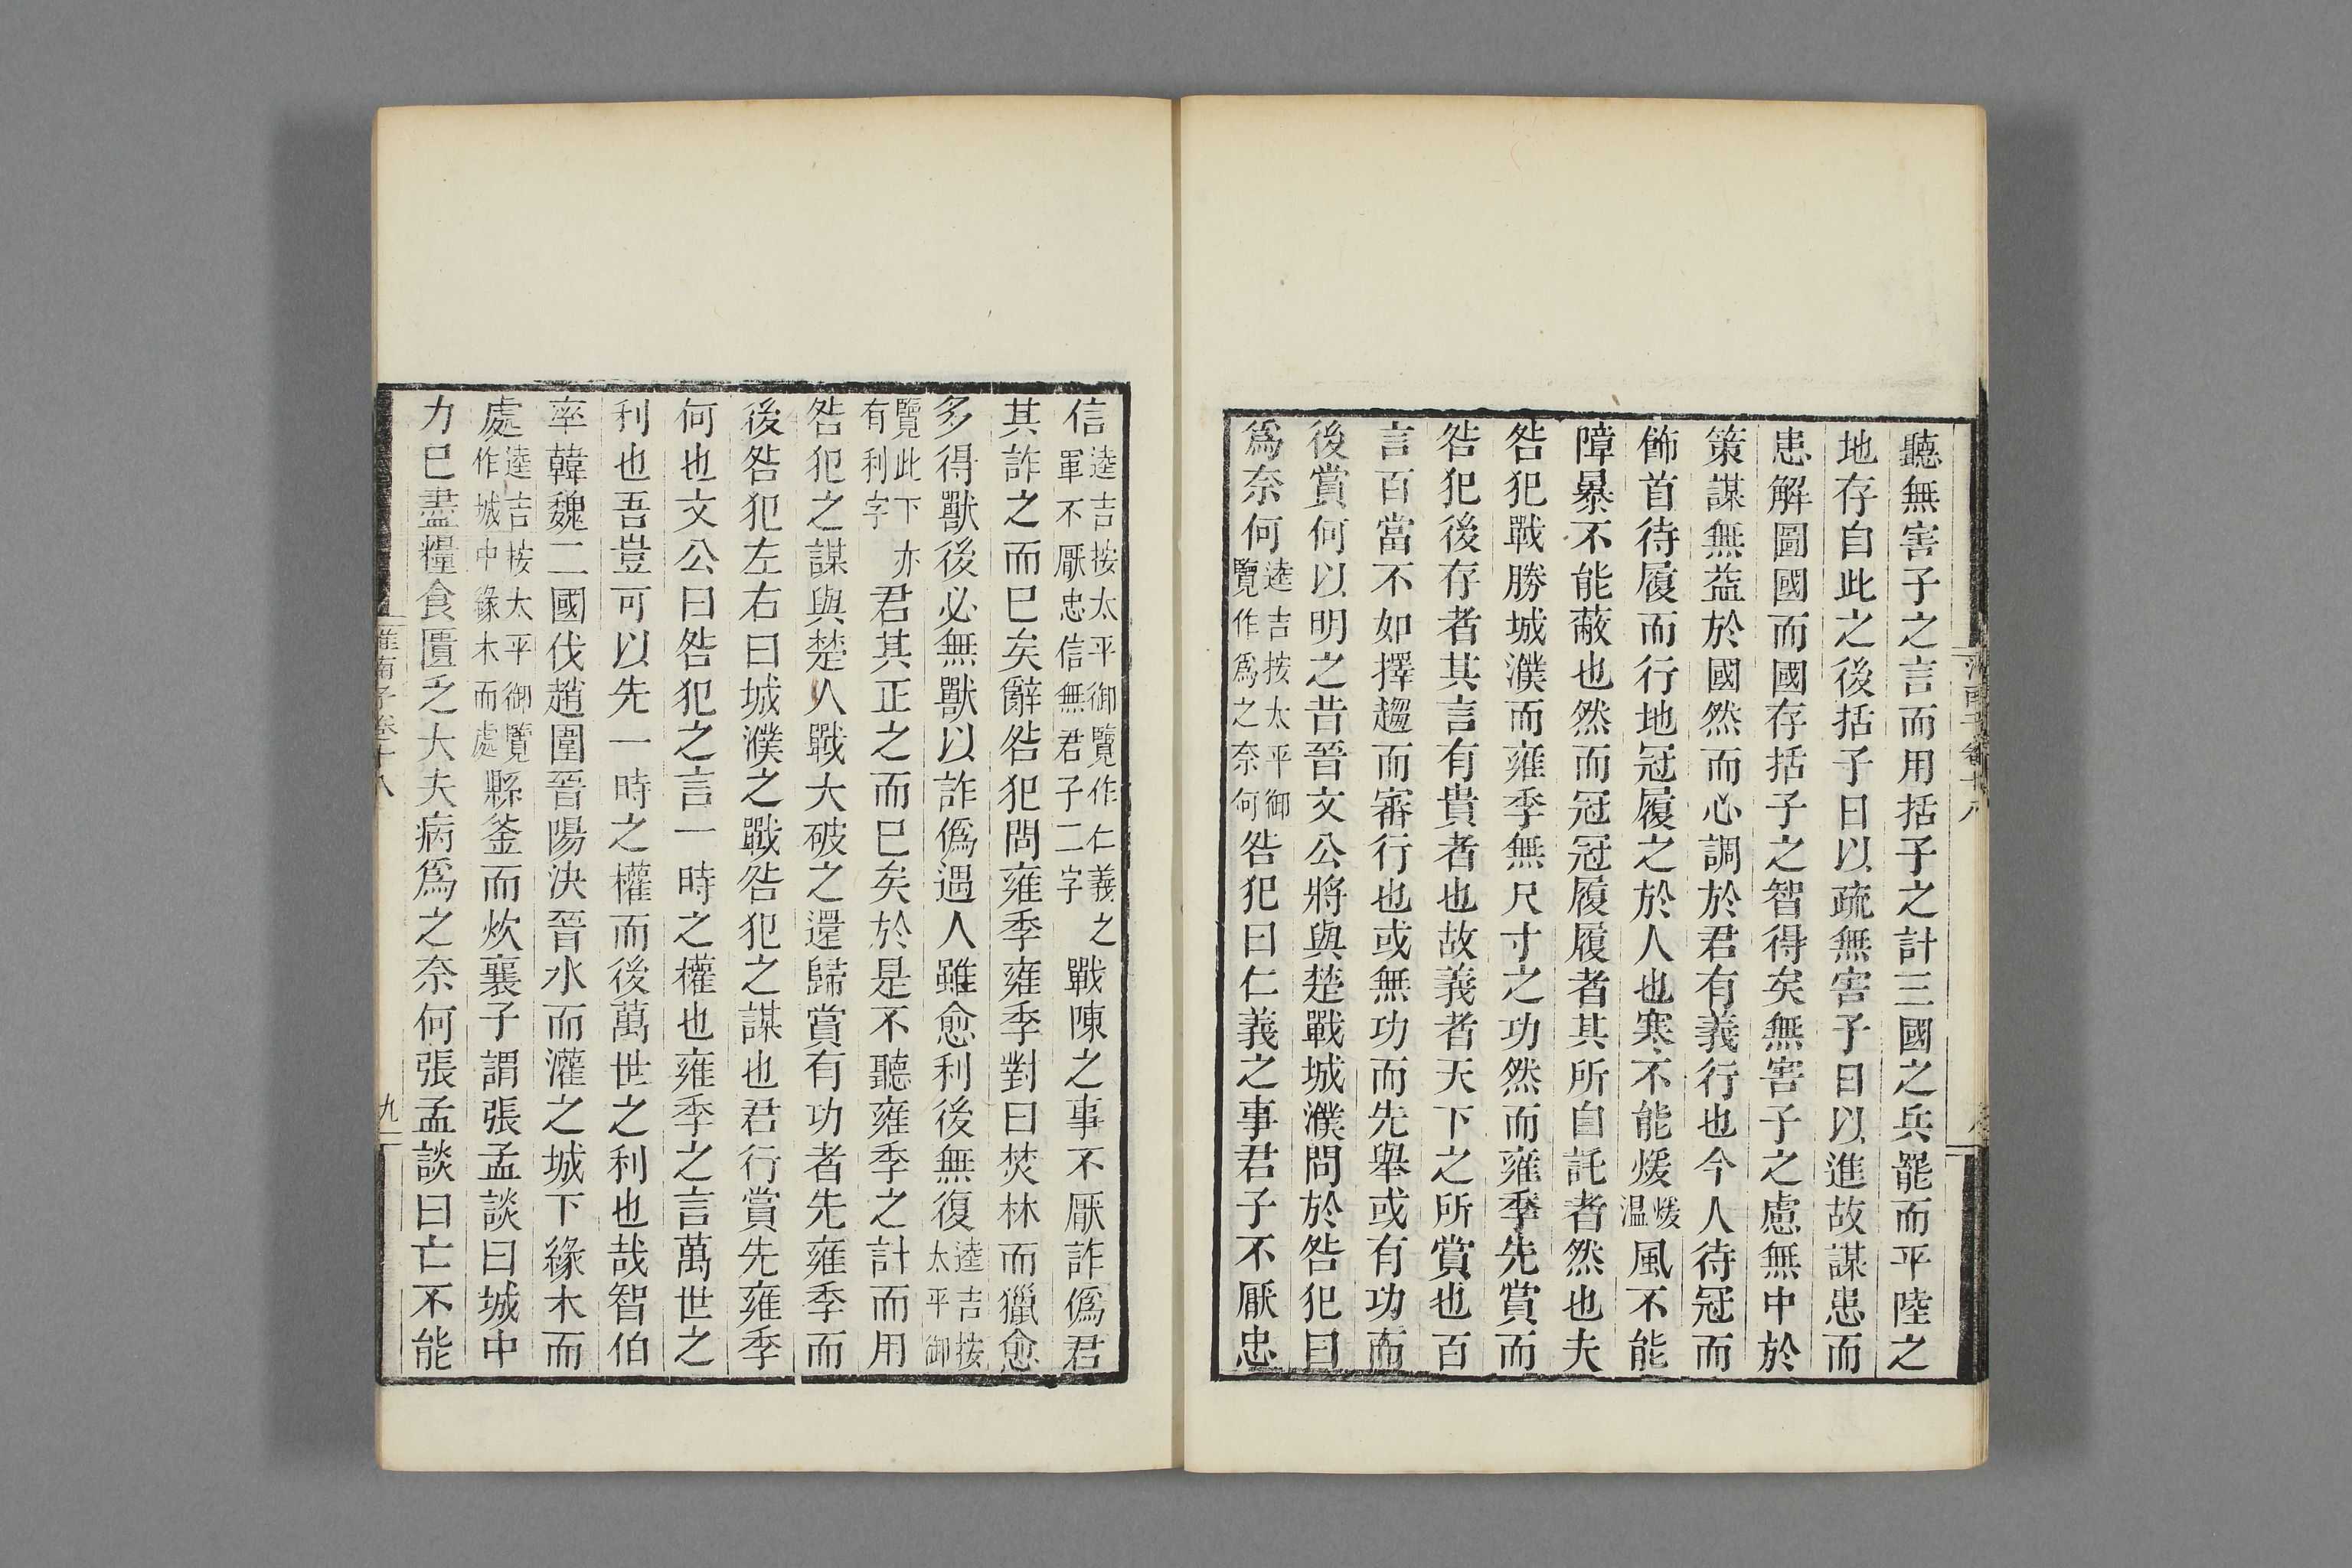 聽無害子之言而用括子之計三國之兵罷而平陸之
地存自此之後括子日以疏無害子日以進故謀患而
患解圖國而國存括子之智得矣無害子之慮無中於
策謀無益於國然而心調於君有義行也今人待冠而
飾首待履而行地冠履之於人也寒不能煖煖溫風不能
障暴不能蔽也然而冠冠履履者其所自託者然也夫
咎犯戰勝城濮而雍季無尺寸之功然而雍季先賞而
咎犯後存者其言有貴者也故義者天下之所賞也百
言百當不如擇趨而審行也或無功而先舉或有功而
後賞何以明之昔晉文公將與楚戰城濮問於咎犯曰
爲奈何逵吉按太平御覽作爲之奈何咎犯曰仁義之事君子不厭忠
信逵吉按太平御覽作仁義之軍不厭忠信無君子二字戰陳之事不厭詐僞君
其詐之而已矣辭咎犯問雍季雍季對曰焚林而獵愈
多得獸後必無獸以詐僞遇人雖愈利後無復逵吉按太平御
覽此下亦有利字君其正之而已矣於是不聽雍季之計而用
咎犯之謀與楚人戰大破之還歸賞有功者先雍季而
後咎犯左右曰城濮之戰咎犯之謀也君行賞先雍季
何也文公曰咎犯之言一時之權也雍季之言萬世之
利也吾豈可以先一時之權而後萬世之利也哉智伯
率韓魏二國伐趙圍晉陽決晉水而灌之城下緣木而
處逵吉按太平御覽作城中緣木而處縣釜而炊襄子謂張孟談曰城中
力已盡糧食匱乏大夫病爲之奈何張孟談曰亡不能
淮南子卷十八
九